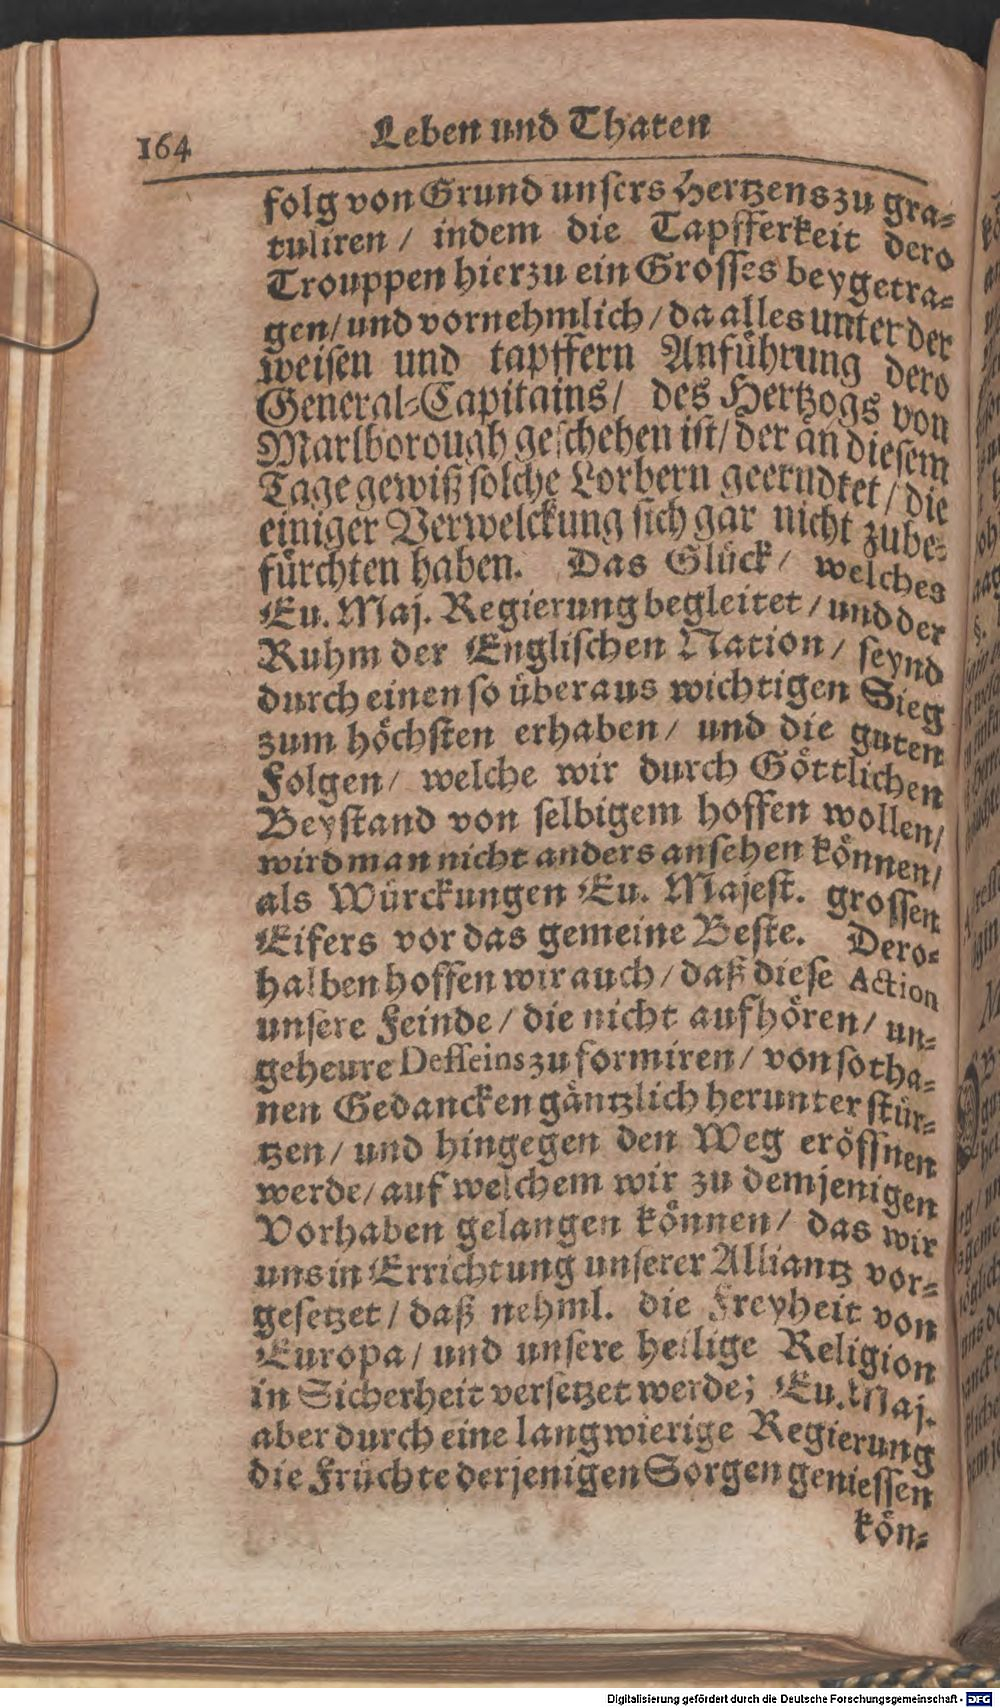 164
Leben und Thaten
folg von Grund unsers Hertzens zu gra-
tuliren / indem die Tapfferkeit dero
Trouppen hierzu ein Grosses beygetra-
gen / und vornehmlich / da alles unter der
weisen und tapffern Anführung dero
General-Capitains / des Hertzogs von
Marlborough geschehen ist / der an diesem
Tage gewiß solche Lorbern geerndtet / die
einiger Verwelckung sich gar nicht zube-
fürchten haben. Das Glück / welches
Eu. Maj. Regierung begleitet / und der
Ruhm der Englischen Nation / seynd
durch einen so überaus wichtigen Sieg
zum höchsten erhaben / und die guten
Folgen / welche wir durch Göttlichen
Beystand von selbigem hoffen wollen /
wird man nicht anders ansehen können /
als Würckungen Eu. Majest. grossen
Eifers vor das gemeine Beste. Dero-
halben hoffen wir auch / daß diese Action
unsere Feinde / die nicht aufhören / un-
geheure Desseins zu formiren / von sotha-
nen Gedancken gäntzlich herunter stür-
tzen / und hingegen den Weg eröffnen
werde / auf welchem wir zu demjenigen
Vorhaben gelangen können / das wir
uns in Errichtung unserer Alliantz vor-
gesetzet / daß nehml. die Freyheit von
Europa / und unsere heilige Religion
in Sicherheit versetzet werde; Eu. Maj.
aber durch eine langwierige Regierung
die Früchte derjenigen Sorgen geniessen
kön-
Digitalisierung gefördert durch die Deutsche Forschungsgemeinschaft - DFG